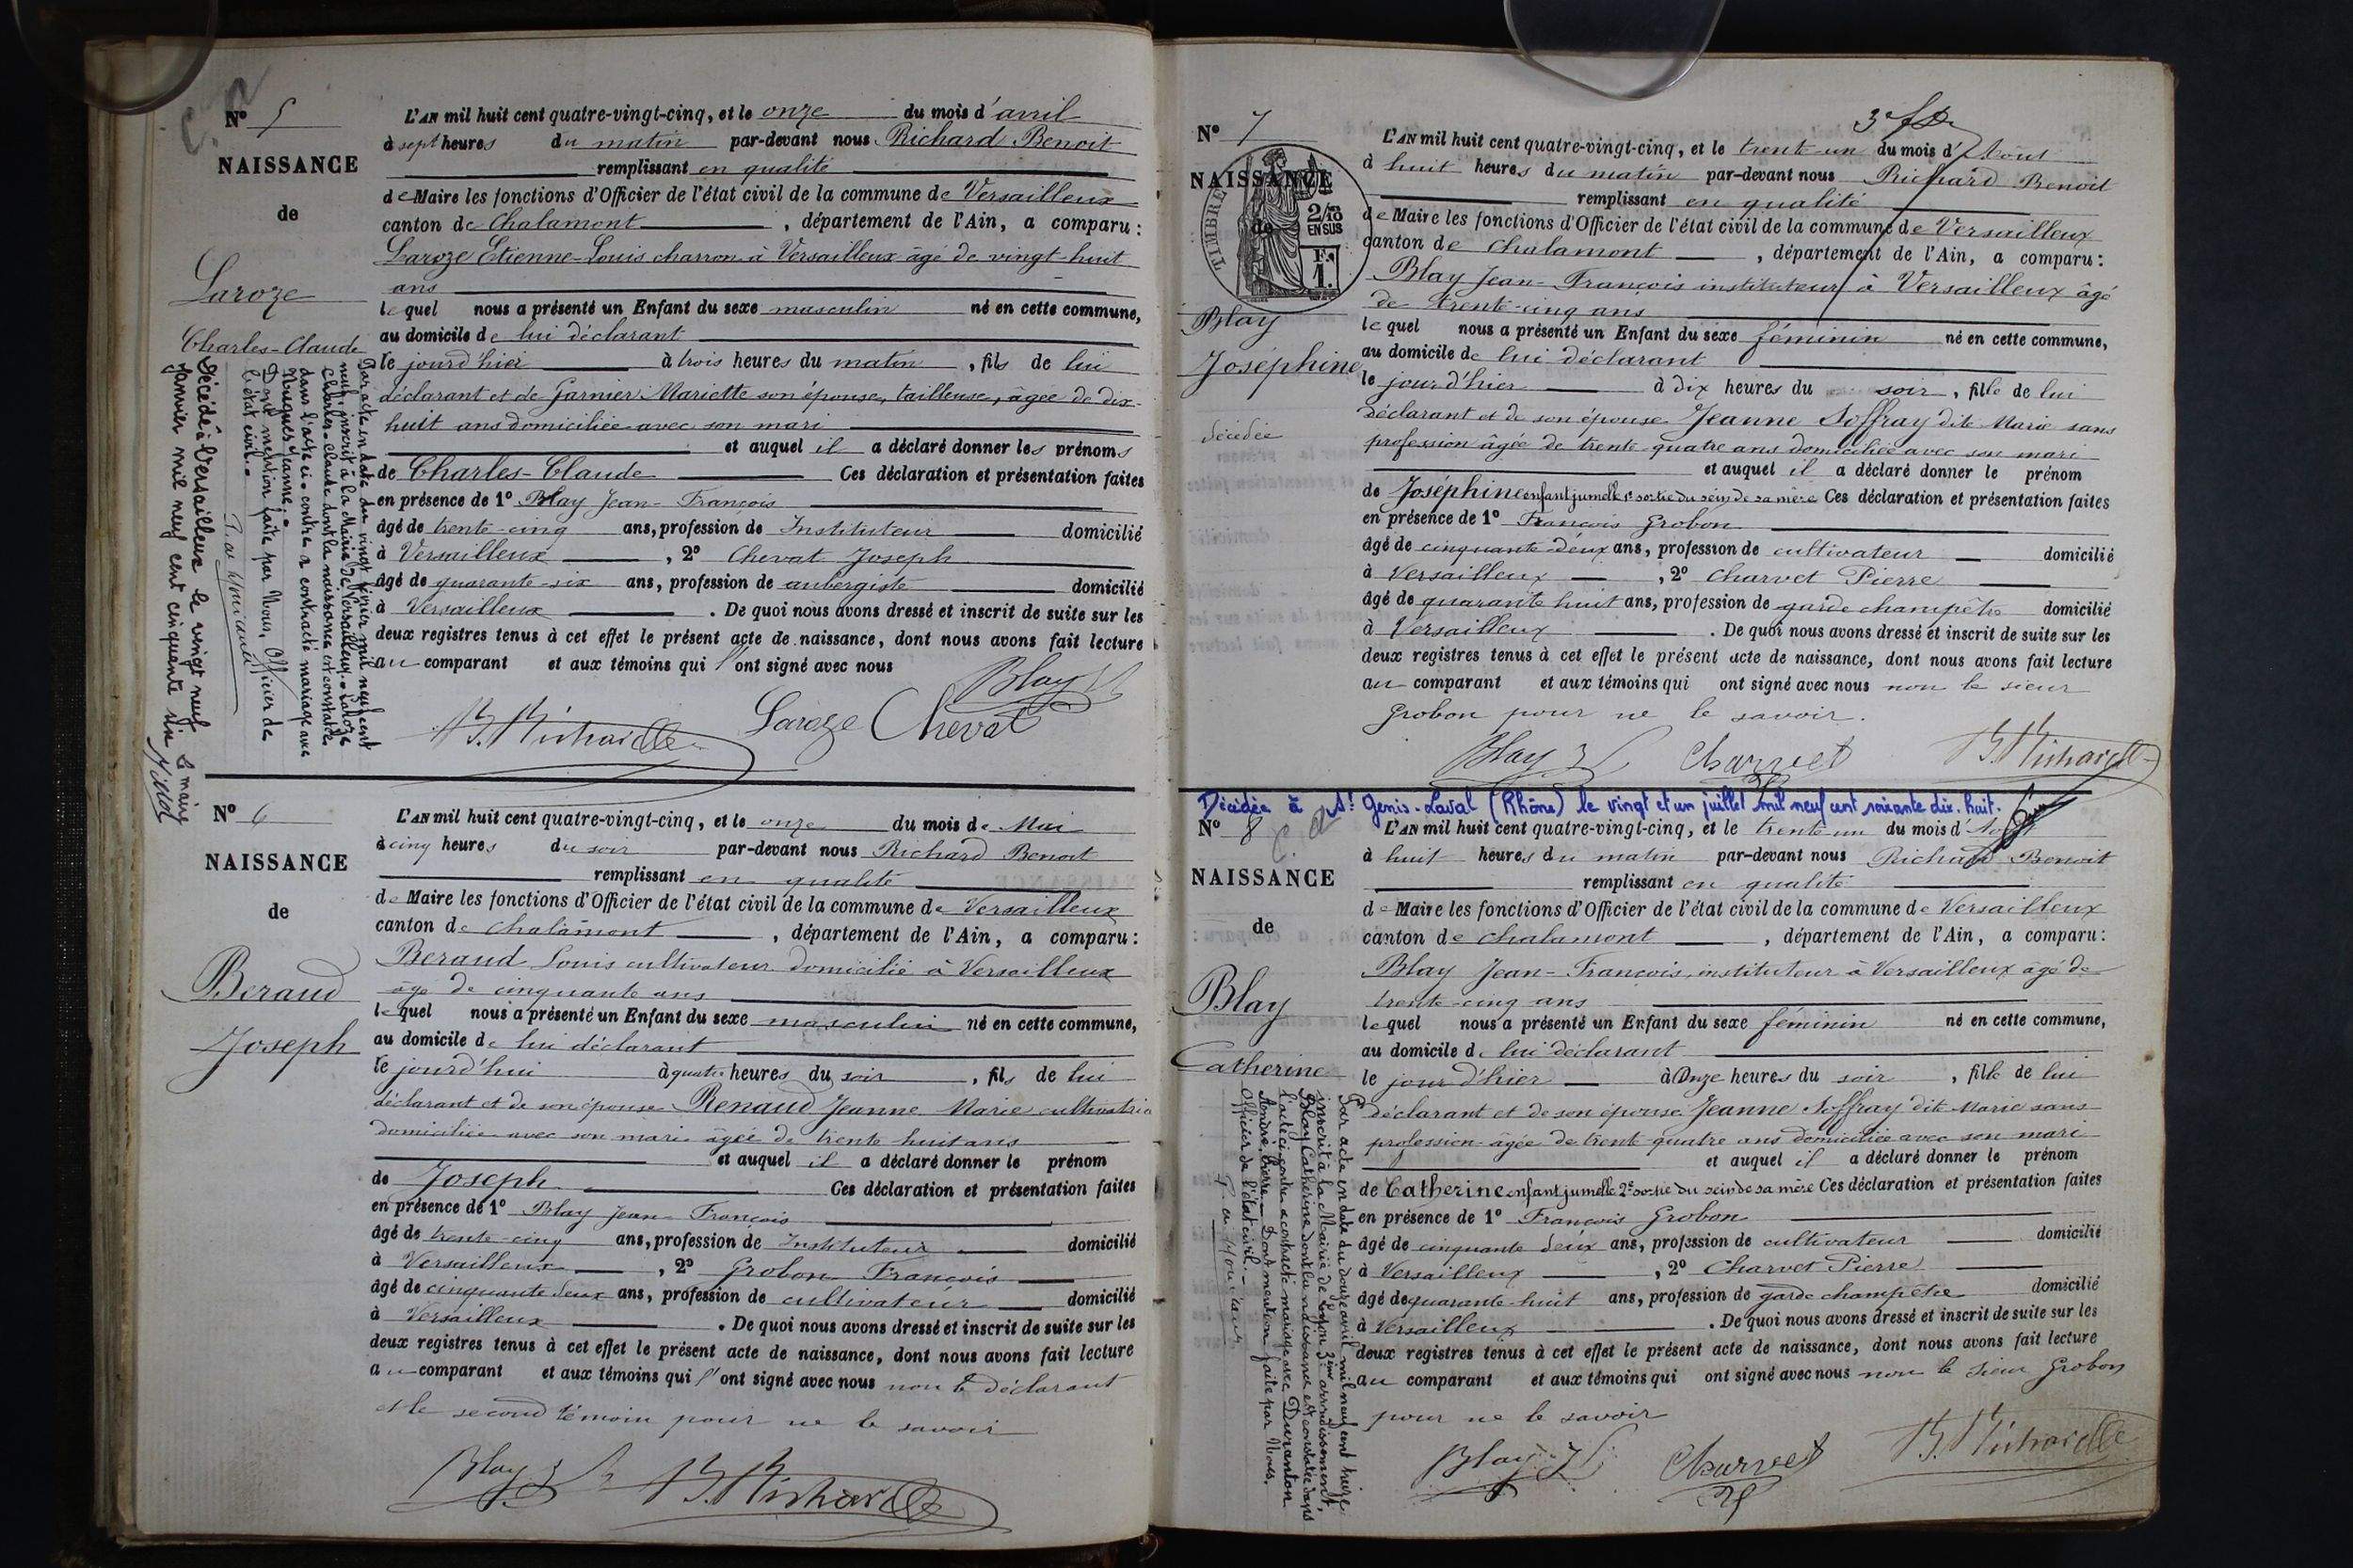 C. A
N° 5
NAISSANCE
de
Laroze
Charles-Claude
L'AN mil huit cent quatre-vingt-cinq, et le onze du mois d'avril
à sept heures du matin par-devant nous Richard Benoit
remplissant en qualité
de Maire les fonctions d'Officier de l'état civil de la commune de Versailleux
canton de Chalamont, département de l'Ain, a comparu :
Laroze Etienne-Louis charron à Versailleux âgé de vingt-huit
ans
lequel nous a présenté un Enfant du sexe masculin né en cette commune,
au domicile de lui déclarant
le jourd'hier à trois heures du matin, fils de lui
déclarant et de Garnier Mariette son épouse, tailleuse, âgée de dix-
huit ans domiciliée avec son mari
et auquel il a déclaré donner les prénoms
de Charles-Claude Ces déclaration et présentation faites
en présence de 1° Blay Jean-François
âgé de trente-cinq ans, profession de Instituteur domicilié
à Versailleux, 2° Chevat Joseph
âgé de quarante-six ans, profession de aubergiste domicilié
à Versailleux. De quoi nous avons dressé et inscrit de suite sur les
deux registres tenus à cet effet le présent acte de naissance, dont nous avons fait lecture
au comparant et aux témoins qui l'ont signé avec nous
Blay
B. Richard Laroze Chevat
Par acte en date du vingt février mil neuf cent
neuf, inscrit à la Mairie de Versailleux, Laroze
Charles-Claude dont la naissance est constatée
dans l'acte ci-contre a contracté mariage avec
Jeanne.
Dont mention faite par Nous, Officier de
l'état civil.
Décédé à Versailleux le vingt neuf
janvier mil neuf cent cinquante six
Le maire
N° 6
NAISSANCE
de
Beraud
Joseph
L'AN mil huit cent quatre-vingt-cinq, et le onze du mois de Mai
à cinq heures du soir par-devant nous Richard Benoit
remplissant en qualité
de Maire les fonctions d'Officier de l'état civil de la commune de Versailleux
canton de Chalamont, département de l'Ain, a comparu :
Beraud Louis cultivateur domicilié à Versailleux
âgé de cinquante ans
lequel nous a présenté un Enfant du sexe masculin né en cette commune,
au domicile de lui déclarant
le jourd'hui à quatre heures du soir, fils de lui
déclarant et de son épouse Renaud Jeanne Marie cultivatrice
domiciliée avec son mari âgée de trente huit ans
et auquel il a déclaré donner le prénom
de Joseph Ces déclaration et présentation faites
en présence de 1° Blay Jean-François
âgé de trente-cinq ans, profession de Instituteur domicilié
à Versailleux, 2° Grobon François
âgé de cinquante deux ans, profession de cultivateur domicilié
à Versailleux. De quoi nous avons dressé et inscrit de suite sur les
deux registres tenus à cet effet le présent acte de naissance, dont nous avons fait lecture
au comparant et aux témoins qui l'ont signé avec nous non le déclarant
et le second témoin pour ne le savoir
Blay B. Richard
3e
N° 7
NAISSANCE
de
TIMBRE
2/10
EN SUS
F.
1.
Blay
Joséphine
décédée
L'AN mil huit cent quatre-vingt-cinq, et le trente-un du mois d'Août
à huit heures du matin par-devant nous Richard Benoit
remplissant en qualité
de Maire les fonctions d'Officier de l'état civil de la commune de Versailleux
canton de Chalamont, département de l'Ain, a comparu :
Blay Jean-François instituteur à Versailleux âgé
de trente-cinq ans
lequel nous a présenté un Enfant du sexe féminin né en cette commune,
au domicile de lui déclarant
le jour d'hier à dix heures du soir, fille de lui
déclarant et de son épouse Jeanne Soffray dite Marie sans
profession âgée de trente-quatre ans domiciliée avec son mari
et auquel il a déclaré donner le prénom
de Joséphine enfant jumelle 1e sortie du sein de sa mère Ces déclaration et présentation faites
en présence de 1° François Grobon
âgé de cinquante-deux ans, profession de cultivateur domicilié
à Versailleux, 2° Charvet Pierre
âgé de quarante huit ans, profession de garde champêtre domicilié
à Versailleux. De quoi nous avons dressé et inscrit de suite sur les
deux registres tenus à cet effet le présent acte de naissance, dont nous avons fait lecture
au comparant et aux témoins qui ont signé avec nous non le sieur
Grobon pour ne le savoir.
Blay Charvet B. Richard
Décédée à St Genis-Laval (Rhône) le vingt et un juillet mil neuf cent soixante dix-huit.
N° 8
C. A
NAISSANCE
de
Blay
Catherine
L'AN mil huit cent quatre-vingt-cinq, et le trente-un du mois d'Août
à huit heures du matin par-devant nous Richard Benoit
remplissant en qualité
de Maire les fonctions d'Officier de l'état civil de la commune de Versailleux
canton de Chalamont, département de l'Ain, a comparu :
Blay Jean-François, instituteur à Versailleux âgé de
trente-cinq ans
lequel nous a présenté un Enfant du sexe féminin né en cette commune,
au domicile de lui déclarant
le jour d'hier à Onze heures du soir, fille de lui
déclarant et de son épouse Jeanne Soffray dite Marie sans
profession âgée de trent quatre ans domiciliée avec son mari
et auquel il a déclaré donner le prénom
de Catherine enfant jumelle 2e sortie du sein de sa mère Ces déclaration et présentation faites
en présence de 1° François Grobon
âgé de cinquante deux ans, profession de cultivateur domicilié
à Versailleux, 2° Charvet Pierre
âgé de quarante-huit ans, profession de garde champêtre domicilié
à Versailleux. De quoi nous avons dressé et inscrit de suite sur les
deux registres tenus à cet effet le présent acte de naissance, dont nous avons fait lecture
au comparant et aux témoins qui ont signé avec nous non le sieur Grobon
pour ne le savoir
Blay Charvet B. Richard
Par acte en date du douze avril mil neuf cent treize
inscrit à la Mairie de Lyon 3ème arrondissement,
Blay Catherine dont la naissance est constatée dans
l'acte ci-contre a contracté mariage avec Duranton
André Pierre. Dont mention faite par Nous,
Officier de l'état civil.